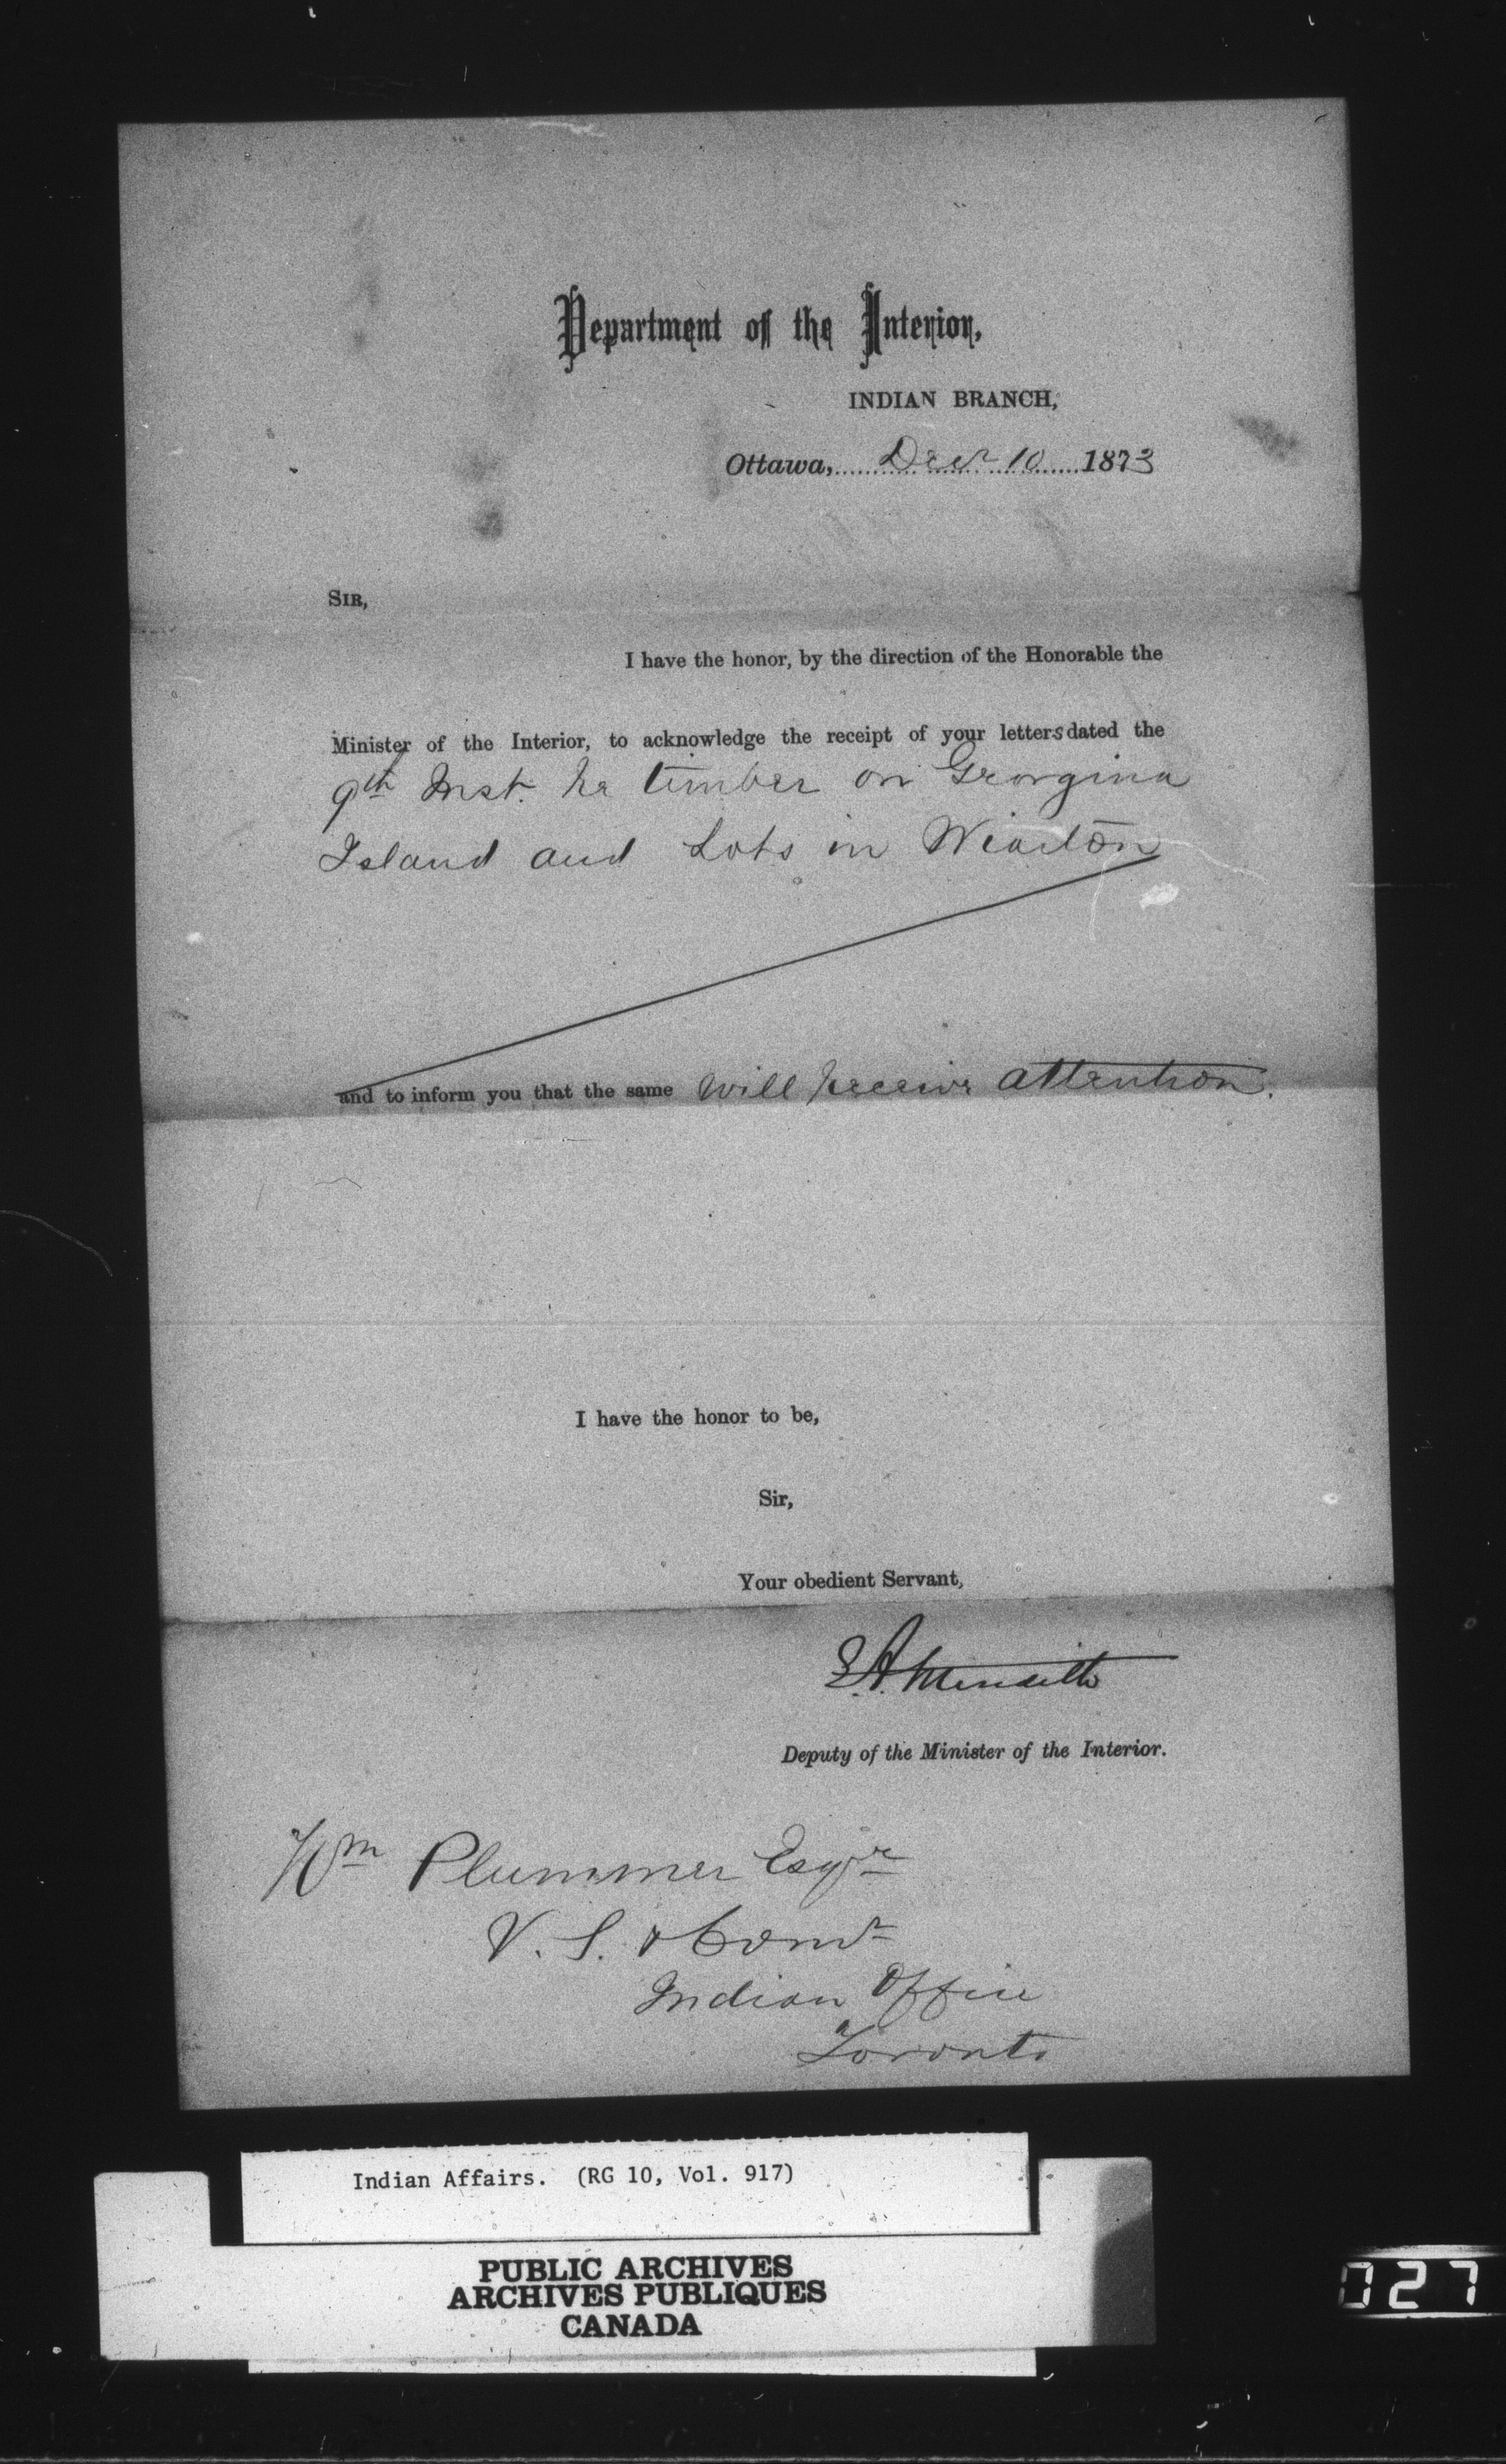 Department of the Interior,
INDIAN BRANCH,
Ottawa, Decr 10 1873
SIR,
I have the honor, by the direction of the Honorable the
Minister of the Interior, to acknowledge the receipt of your letters dated the
9th Inst. re timber on Georgina
Island and Lots in Wiarton
and to inform you that the same will receive attention.
I have the honor to be,
Sir,
Your obedient Servant,
E.A. Meredith
Deputy of the Minister of the Interior.
Wm Plummer Esqre
V. S. & Comr
Indian Office
Toronto
Indian Affairs. (RG 10, Vol. 917)
PUBLIC ARCHIVES
ARCHIVES PUBLIQUES
CANADA
027